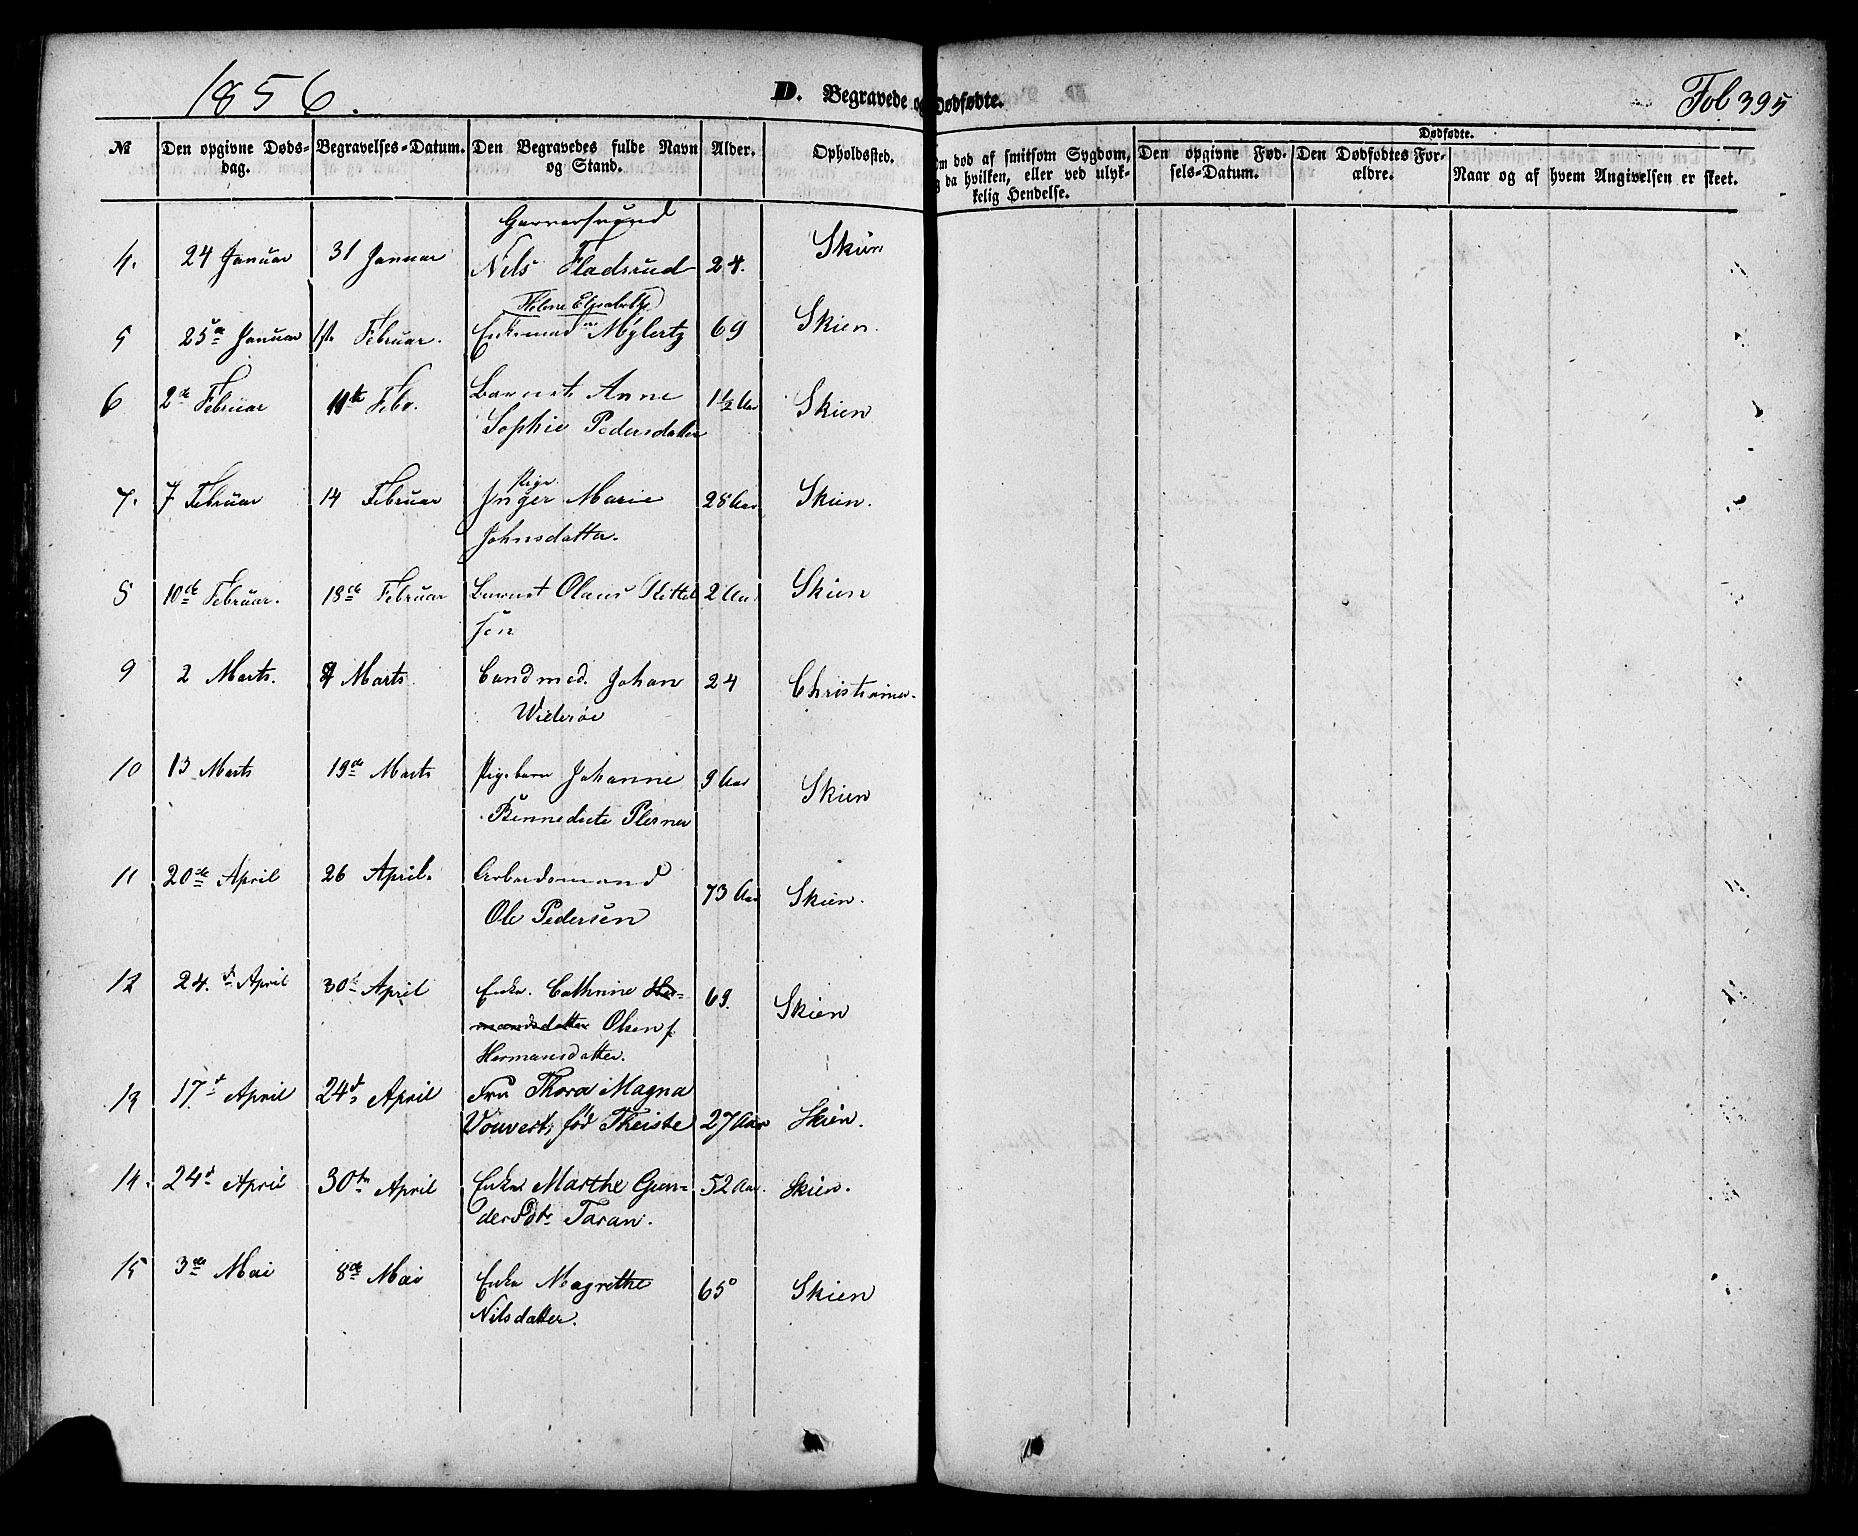 1856.
D. Begravede og Dødfødte.
Fol 395
№
Den opgivne Døds-
dag.
Begravelses-Datum.
Den Begravedes fulde Navn
og Stand.
Alder.
Opholdssted.
Om død af smitsom Sygdom,
og da hvilken, eller ved ulyk-
kelig Hendelse.
Dødfødte.
Den opgivne Fød-
sels-Datum.
Den Dødfødtes For-
ældre.
Naar og af hvem Angivelsen er skeet.
Garversvend
4. 24 Januar 31 Januar Nels Fladsrud 24. Skien
Helene Elisabeth
5 25de Januar 1ste Februar. Enkemad Mylertz 69 Skien.
6 2de Februar 11te Febr. Barnet Anne 1 1/2 Aar Skien
Sophie Pedersdatter
Pige
7. 7 Februar 14 Februar Inger Marie 28 Aar Skien.
Johnsdatter.
8 10de Februar. 18de Februar Barnet Olaus Kittel 2 Aar Skien
sen
9 2 Marts. Marts Cand med. Johan 24 Christiania.
Wideröe
10 13 Marts 19de Marts Pigebarn Johanne 9 Aar Skien
Bennedicte Plesner
11 20de April 26 April. Arbeidsmand 73 Aar Skien.
Ole Pedersen
12 24. d April 30d April Enke. Cathrine Her- 69. Skien
mandsdatter Olsen f.
Hermansdatter.
13 17d April 24d April Fru Thora Magna
Vouvert, fød Theiste 27 Aar Skien.
14. 24d April 30te April Enke Marthe Gun- 52 Aar. Skien.
dersdtr Taran.
15 3de Mai 8de Mai Enke Magrethe 65 Skien
Nilsdatter.